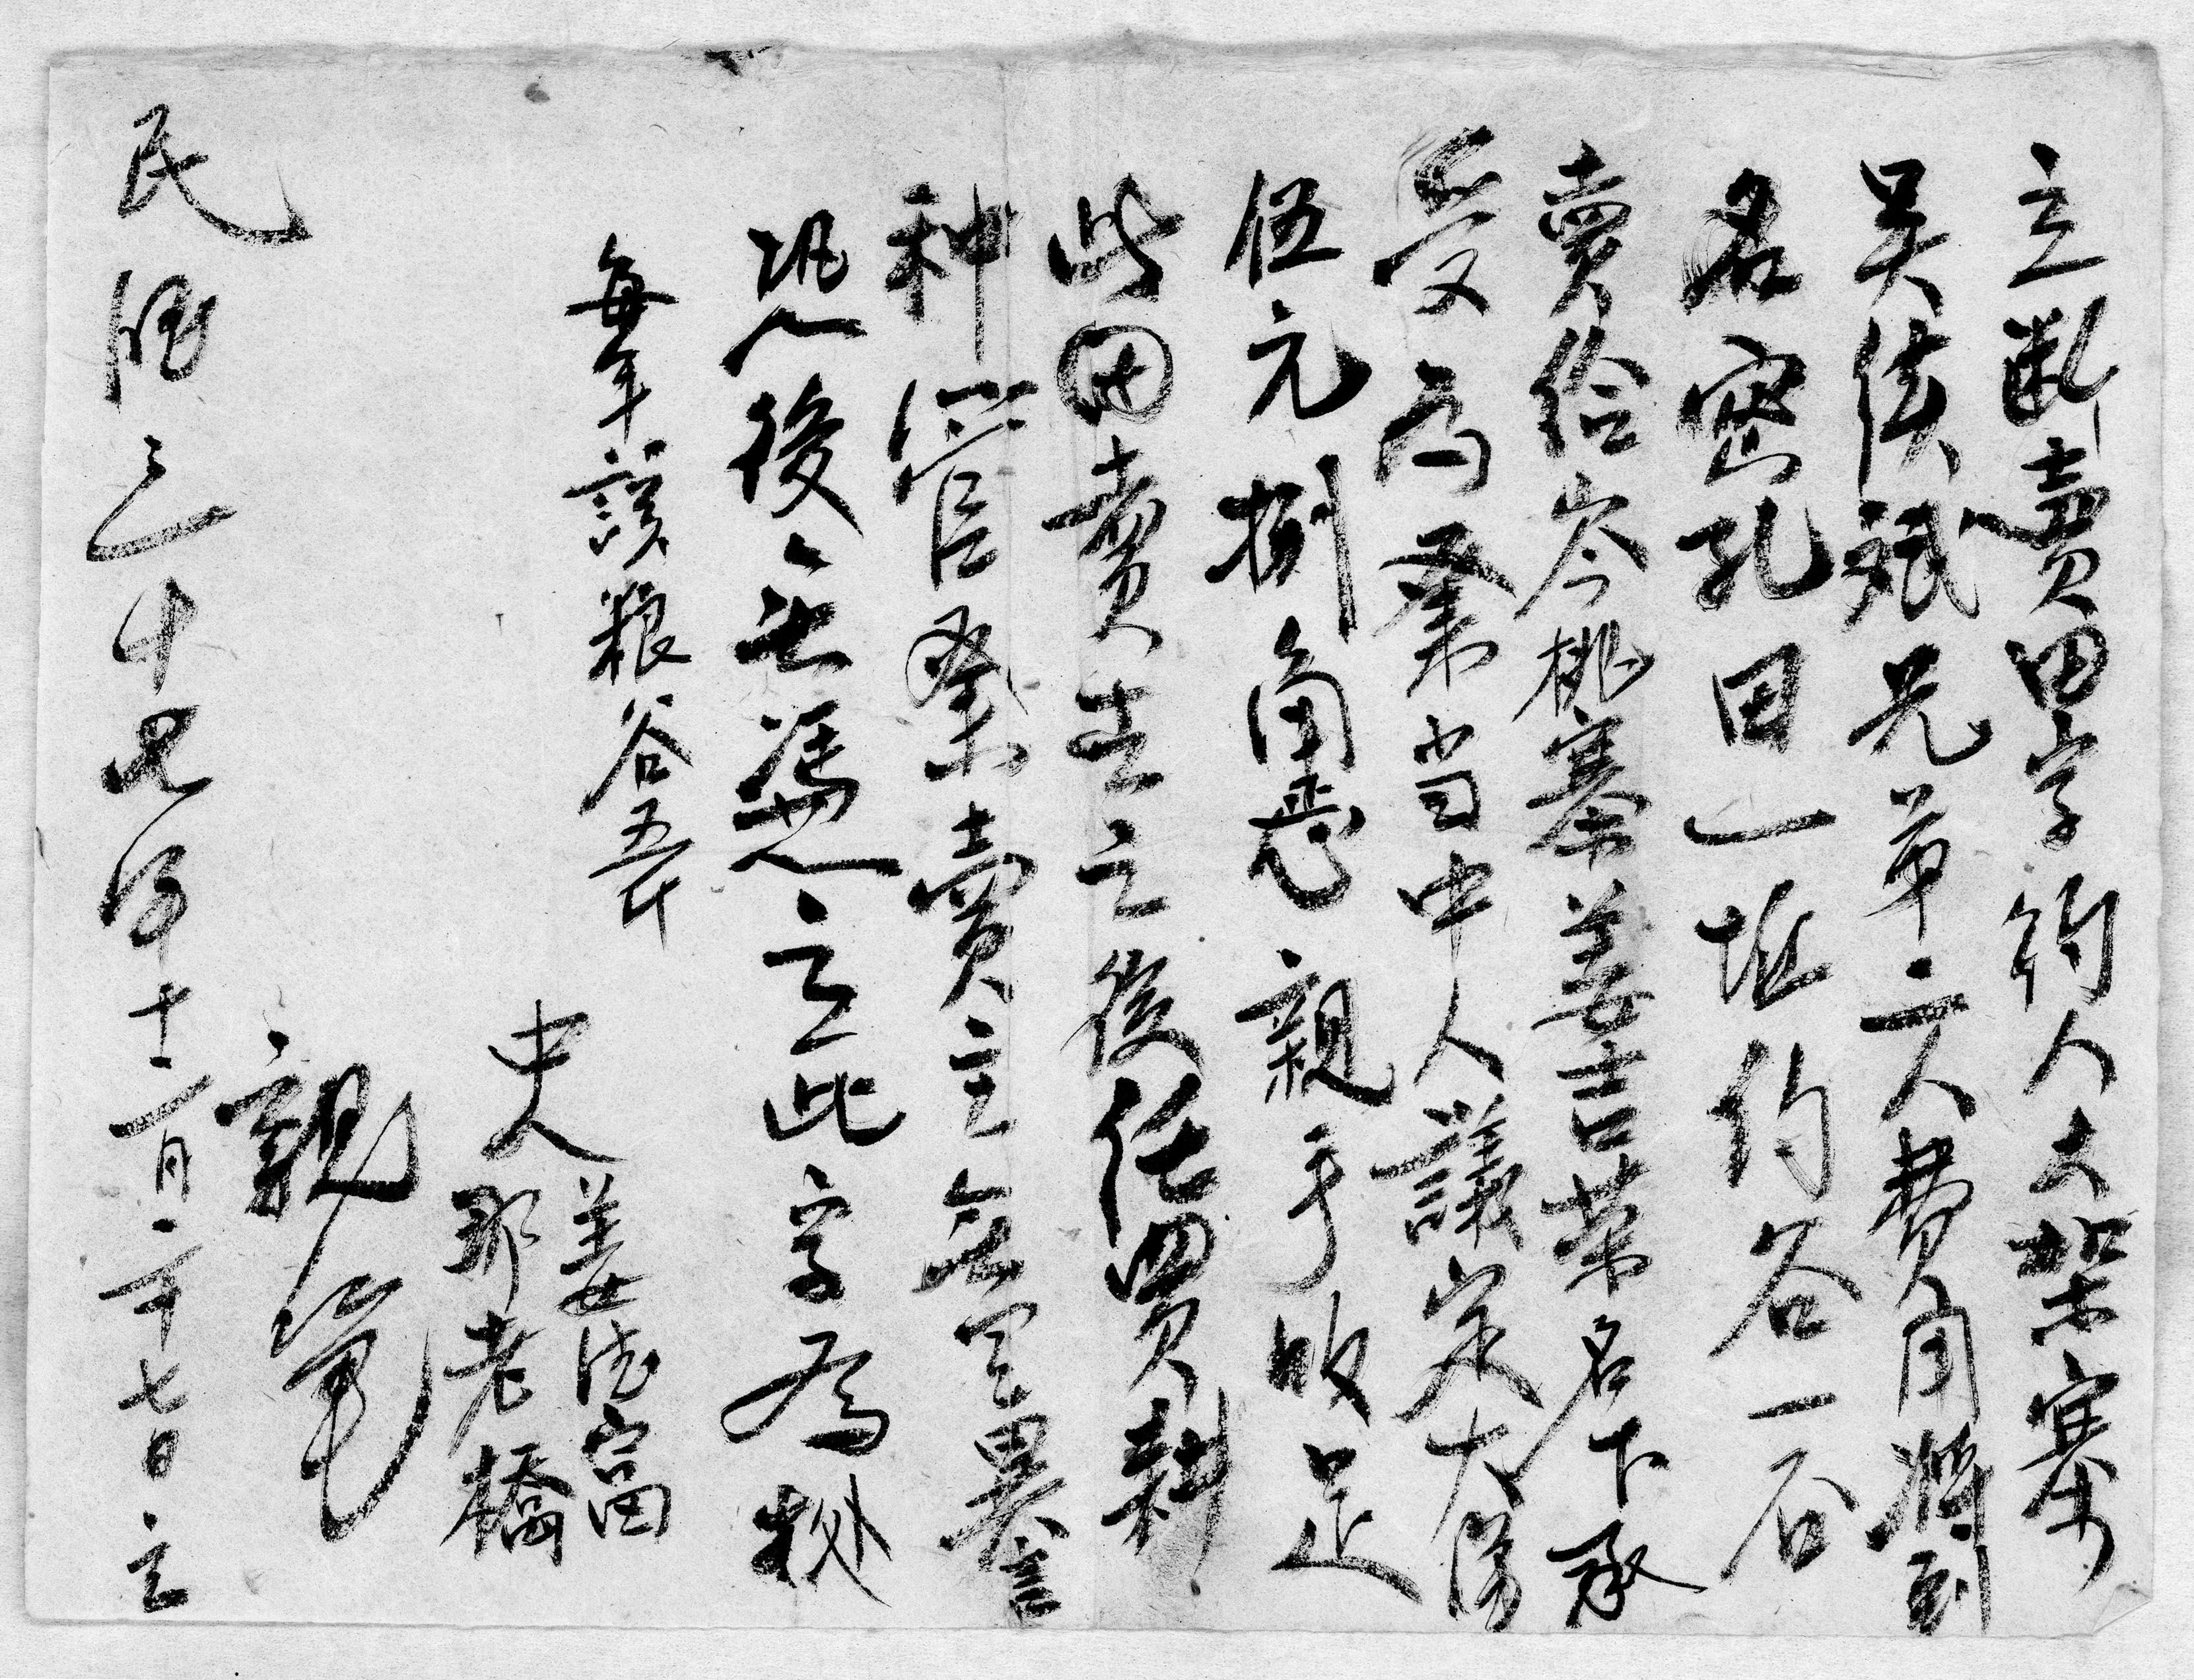 立斷賣田字約人大架寨
吴伕斌兄弟二人費用將到
名密孔田一坵約谷一石
賣給岑桃寨姜吉葉名下承
受為業当中人議定大洋
伍元捌角恴親手收足
此田賣去之後任買耕
種管業賣主無言異言
恐後無憑立此字為據
每年該粮谷五斤
中人 姜法富
那老橋
親筆
民國三十四年十二月二十七日立